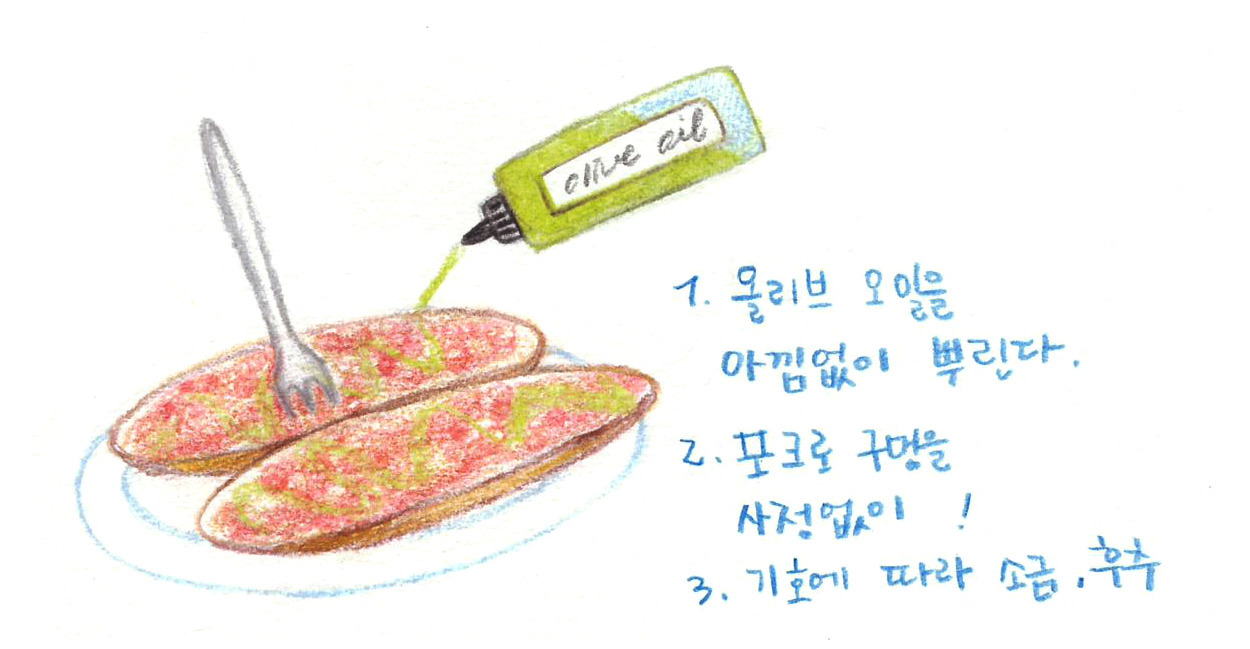 olive oil
1. 올리브 오일을
아낌없이 뿌린다.
2. 포크로 구멍을
사정없이 !
3. 기호에 따라 소금, 후추